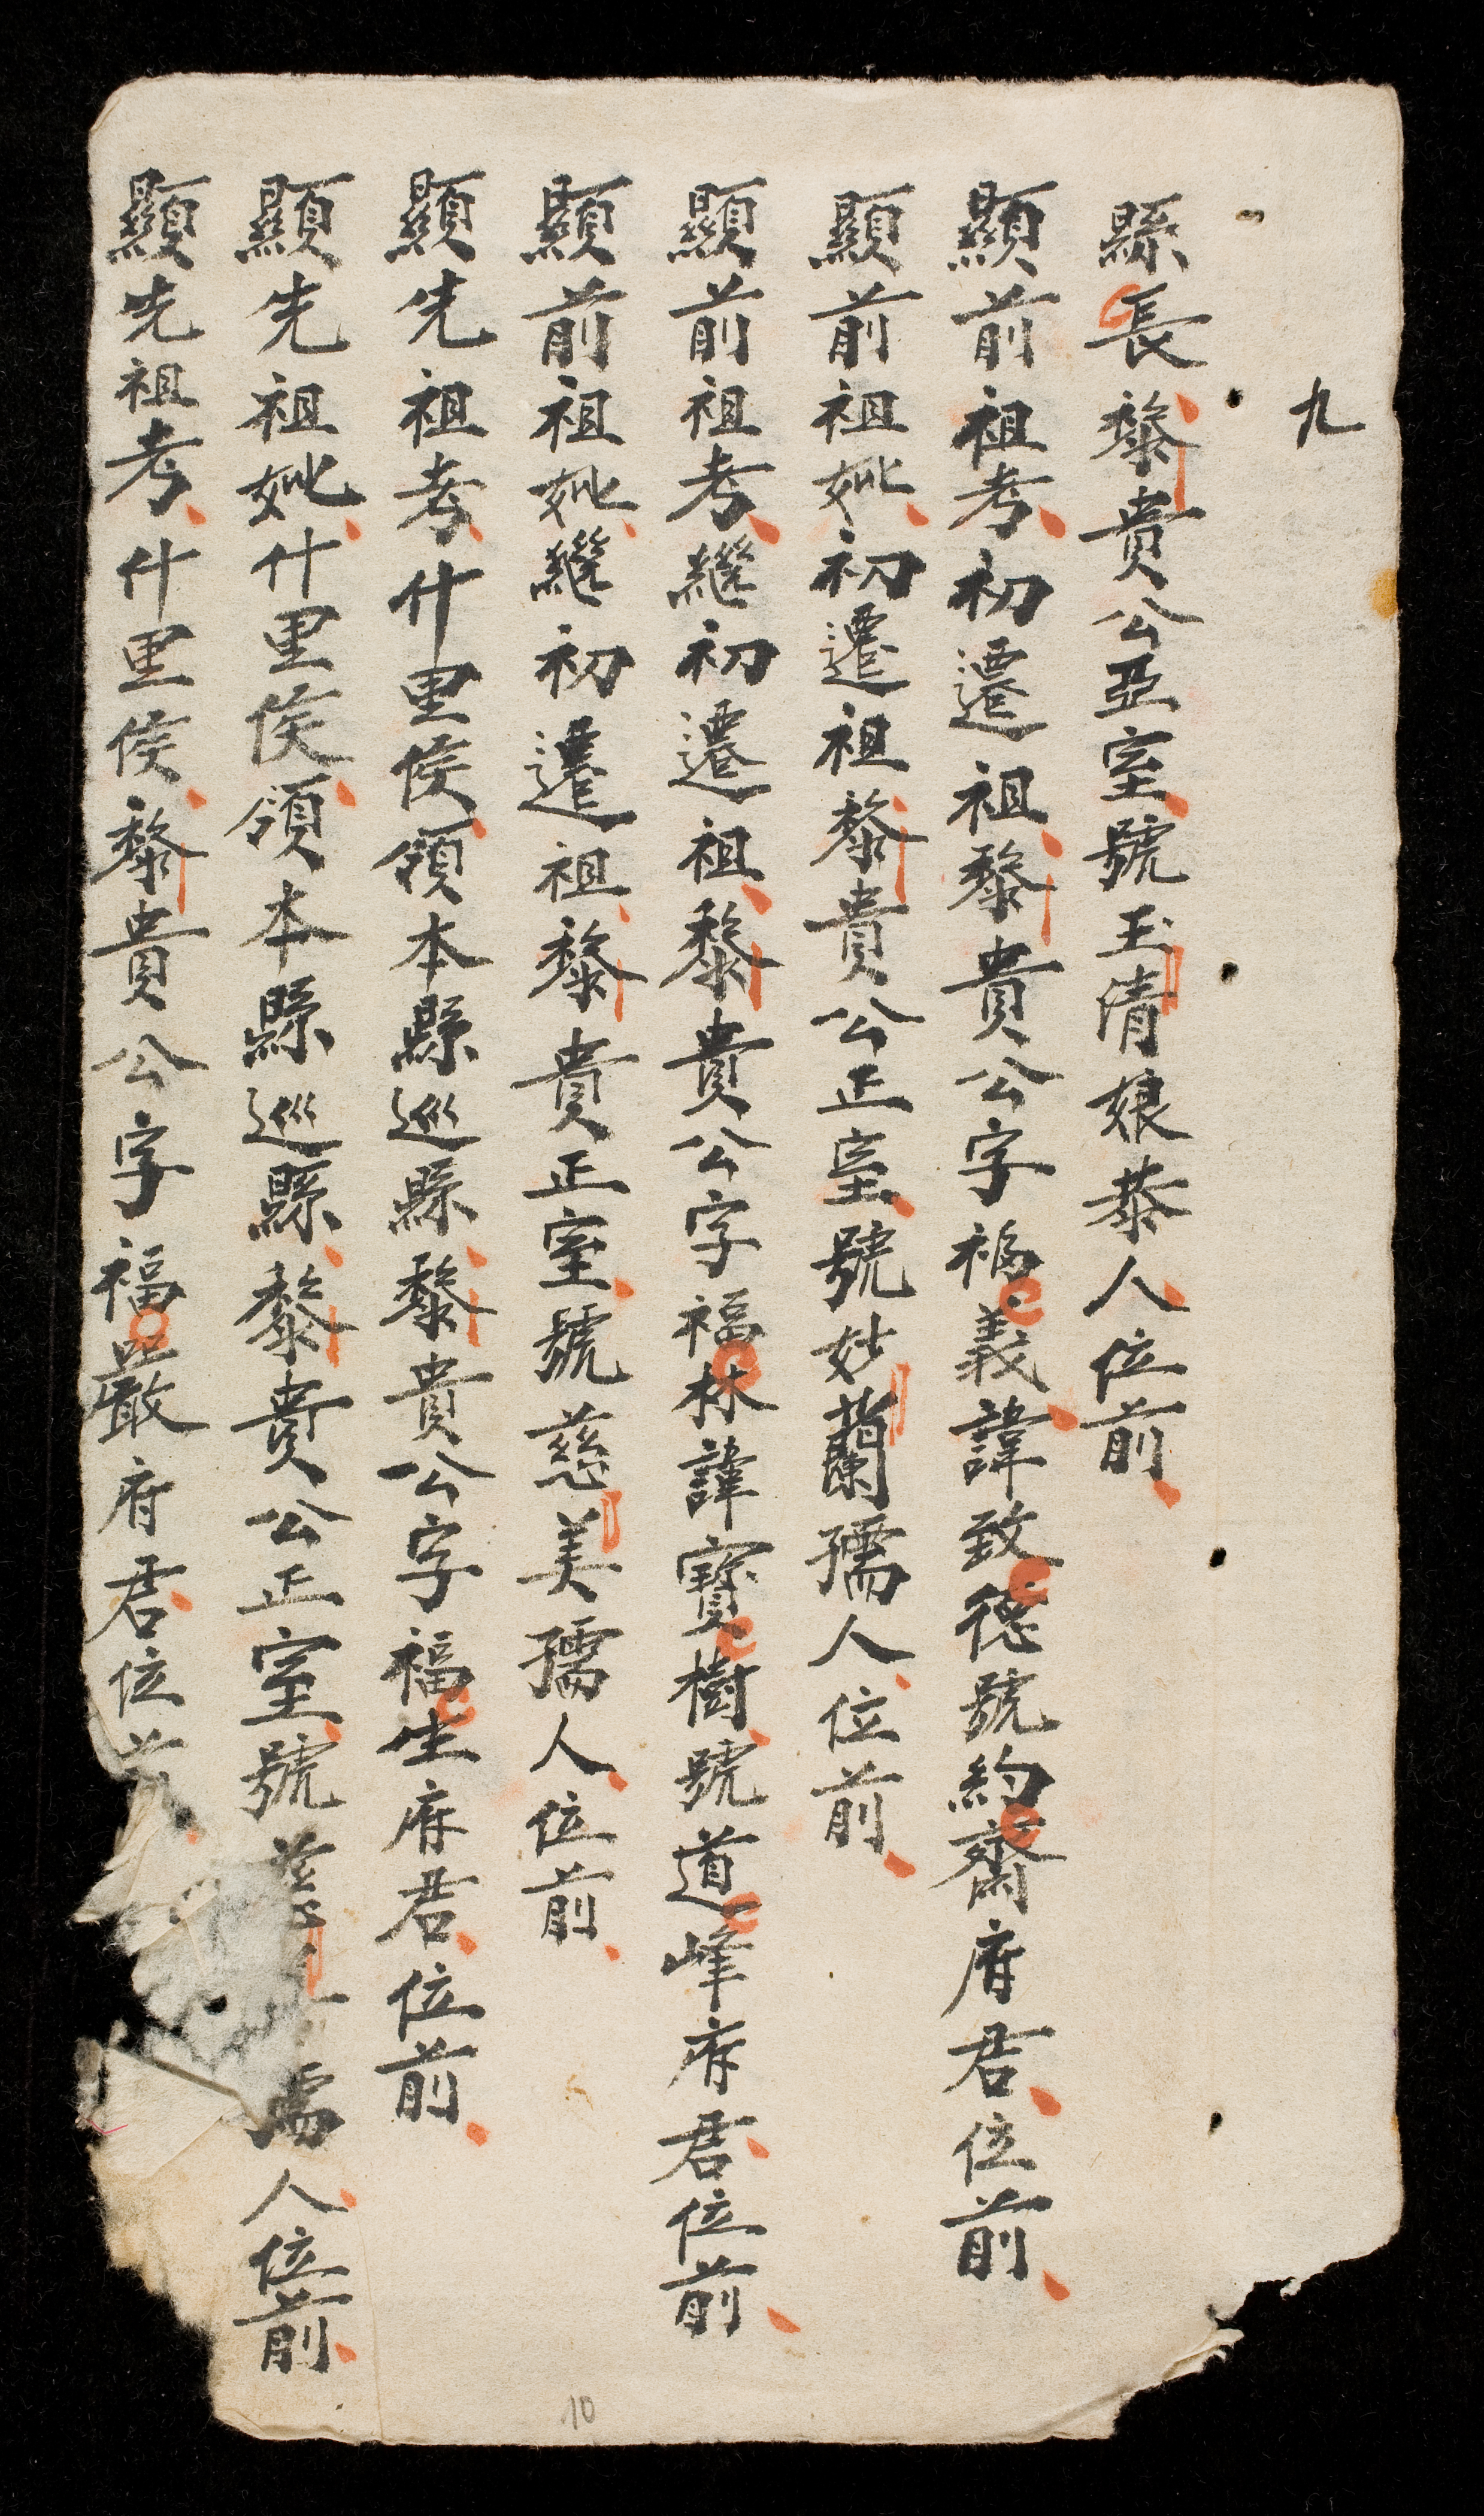 九
縣長黎貴公亞室號玉清娘恭人位前
顯前祖考初遷祖黎貴公字福義諱致德號約齋府君位前
顯前祖妣初遷祖黎貴公正室號妙蘭孺人位前
顯前祖考繼初遷祖黎貴公字福林諱寶樹號道峰府君位前
顯前祖妣繼初遷祖黎貴正室號慈美孺人位前
顯先祖考什里侯領本縣巡縣黎貴公字福生府君位前
顯先祖妣什里侯領本縣巡縣黎貴公正室號慈孺人位前
顯先祖考什里侯黎貴公字福嚴府君位前
10